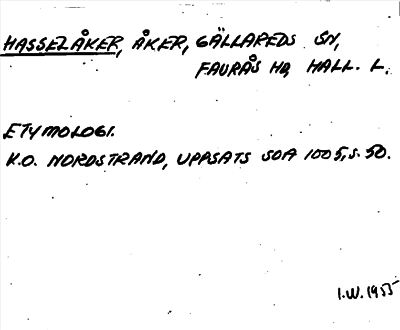 HASSELÅKER, ÅKER, GÄLLAREDS SN,
FAURÅS HD, HALL. L.
ETYMOLOGI.
K.O. NORDSTRAND, UPPSATS SOA 1005, S. 50.
I.W. 1955